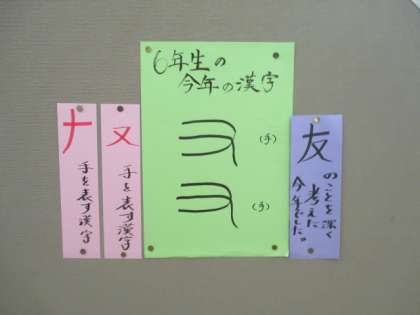 6年生の
今年の漢字
(手)
(手)
友
のことを深く
考えた
今年でした。
ヌ
手を表す漢字
ナ
手を表す漢字